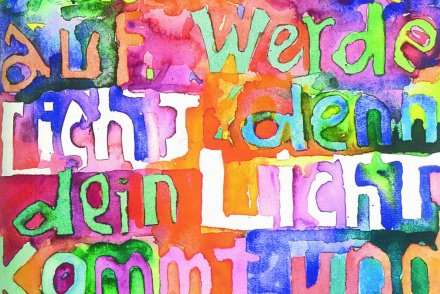 auf. Werde
Licht denn
dein Licht
kommt und